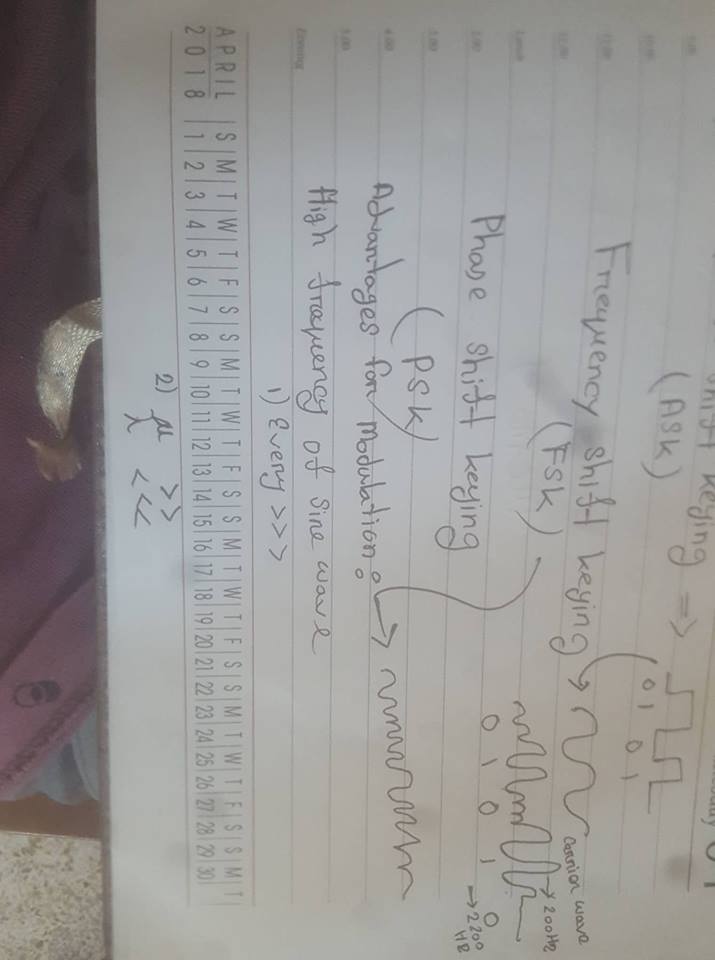 shift keying =>
(ASK)
0 1 0 1
Frequency shift keying
(FSK)
Carrier wave
200Hz
0 1 0 1 0
2200
Hz
Phase shift keying
(PSK)
Advantages for modulation:
High frequency of sine wave
1) Every >>>
APRIL S M T W T F S S M T W T F S S M T W T F S S M T W T F S S M T
2018 1 2 3 4 5 6 7 8 9 10 11 12 13 14 15 16 17 18 19 20 21 22 23 24 25 26 27 28 29 30
2) μ >>
λ <<<
Lunch
2.00
3.00
4.00
5.00
Evening